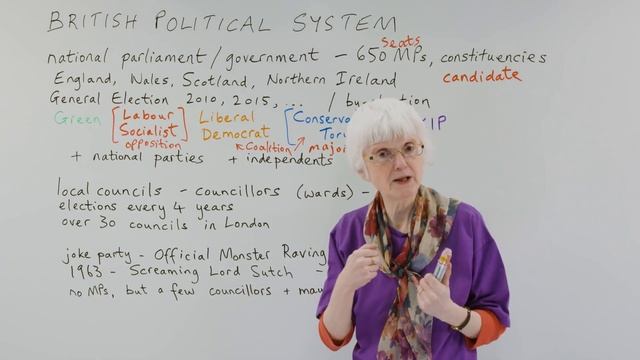 BRITISH POLITICAL SYSTEM
seats
national parliament / government - 650 MPs, constituencies
England, Wales, Scotland, Northern Ireland candidate
General Election 2010, 2015, ... /
Green [Labour Liberal [Conserv
Socialist] Democrat Tor
opposition Coalition major
+ national parties + independents
local councils - councillors (wards) -
elections every 4 years
over 30 councils in London
joke party - Official Monster Raving
1963 - Screaming Lord Sutch -
no MPs, but a few councillors +